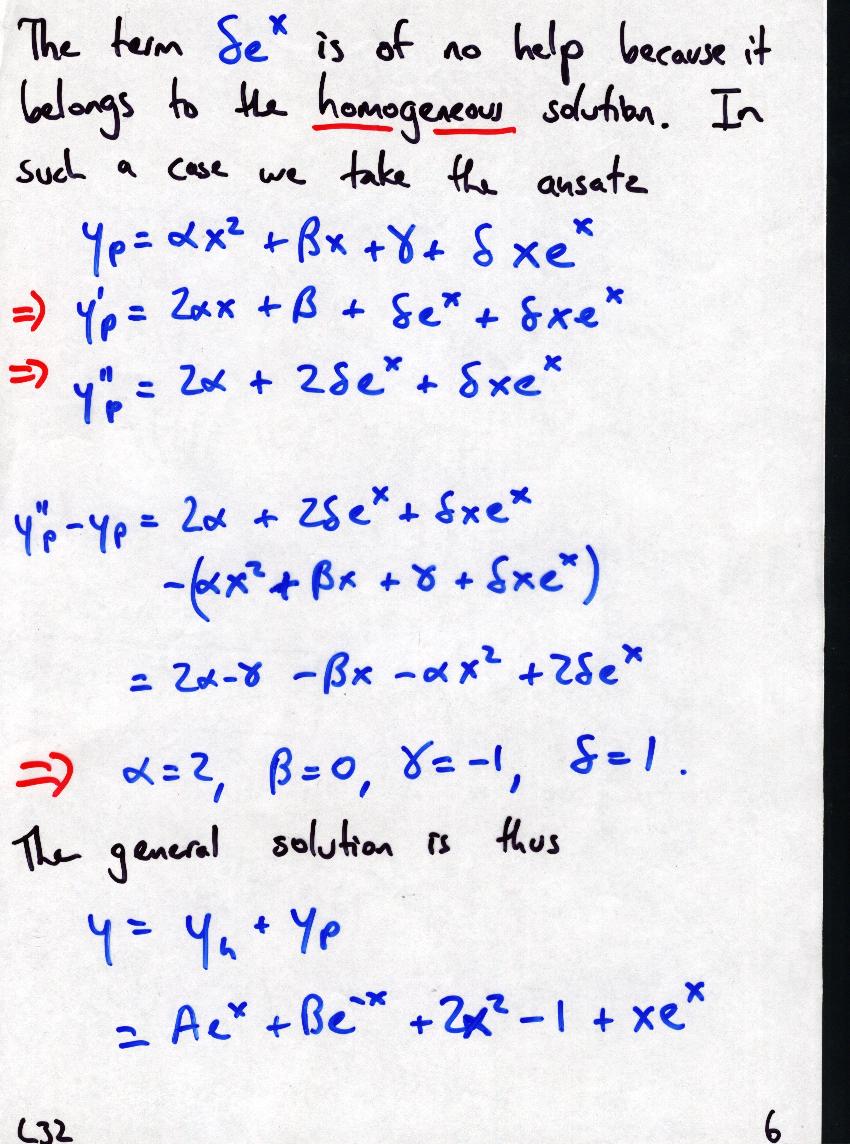 The term δeˣ is of no help because it
belongs to the homogeneous solution. In
such a case we take the ansatz
yₚ = αx² + βx + γ + δxeˣ
⇒ y'ₚ = 2αx + β + δeˣ + δxeˣ
⇒ y''ₚ = 2α + 2δeˣ + δxeˣ
y''ₚ - yₚ = 2α + 2δeˣ + δxeˣ
-(αx² + βx + γ + δxeˣ)
= 2α-γ - βx - αx² + 2δeˣ
⇒ α=2, β=0, γ=-1, δ=1.
The general solution is thus
y = yₕ + yₚ
= Aeˣ + Be⁻ˣ + 2x² - 1 + xeˣ
L32 6